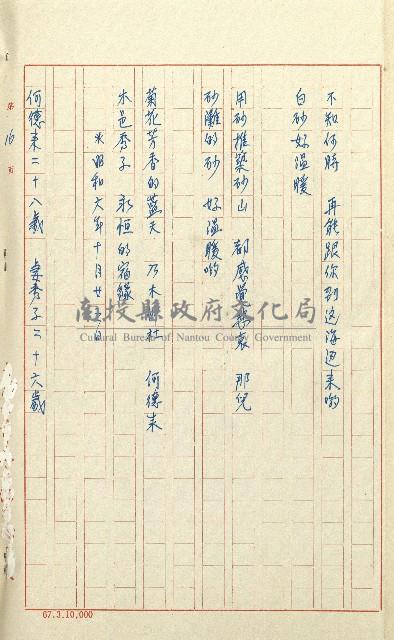 不知何時 再能跟你到這海边来喲
白砂好温暖
用砂堆築砂山 都感覺悲哀 那兒
砂灘的砂 好温暖喲
菊花芳香的藍天 乃木神社 何德来
木邑秀子 永恒的宿緣
昭和六年十月廿 日
何德来二十八歲 秀子二十六歲
第 16 頁
南投縣政府文化局
Cultural Bureau of Nantou County Government
67.3.10,000